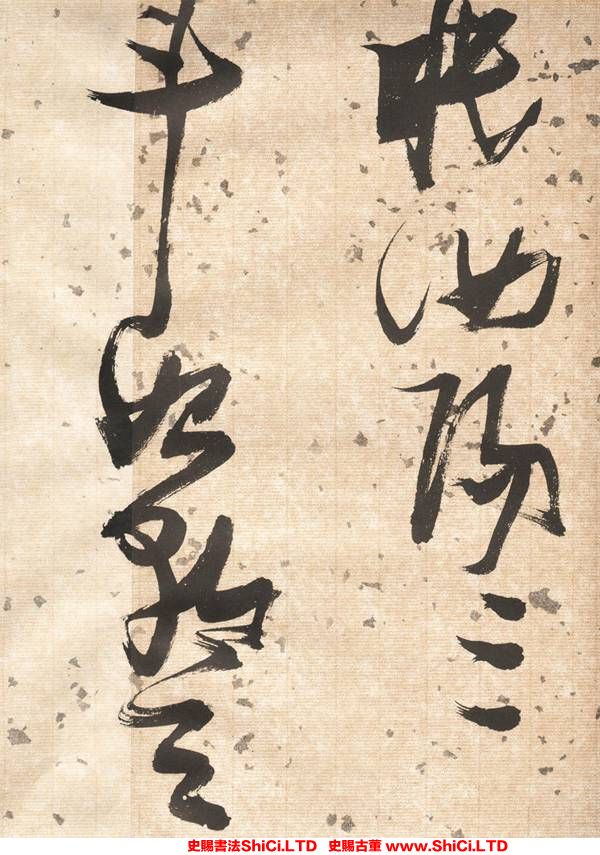 眠汝陽三
斗始朝天
史賜書法ShiCi.LTD 史賜古董 www.ShiCi.LTD